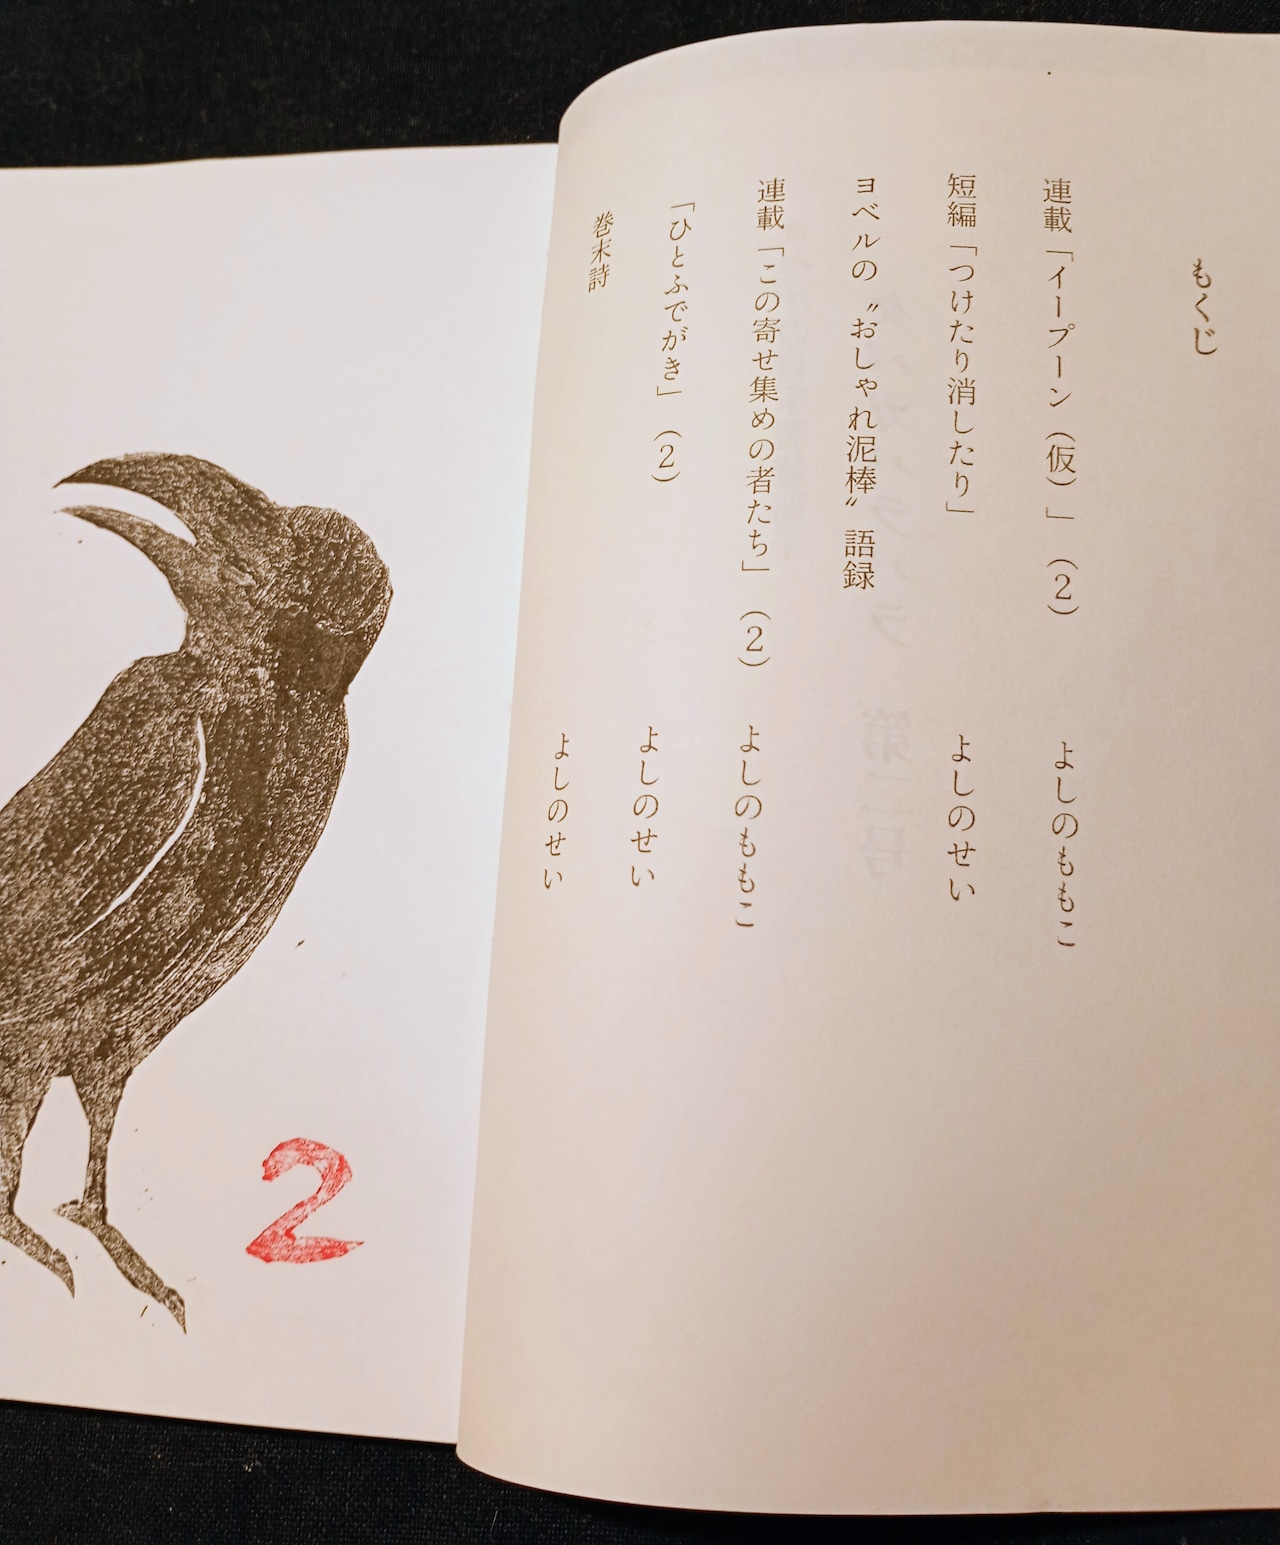 もくじ
連載「イープーン(仮)」(2) よしのももこ
短編「つけたり消したり」 よしのせい
ヨベルの〝おしゃれ泥棒〟語録
連載「この寄せ集めの者たち」(2) よしのももこ
「ひとふでがき」(2) よしのせい
巻末詩 よしのせい
2